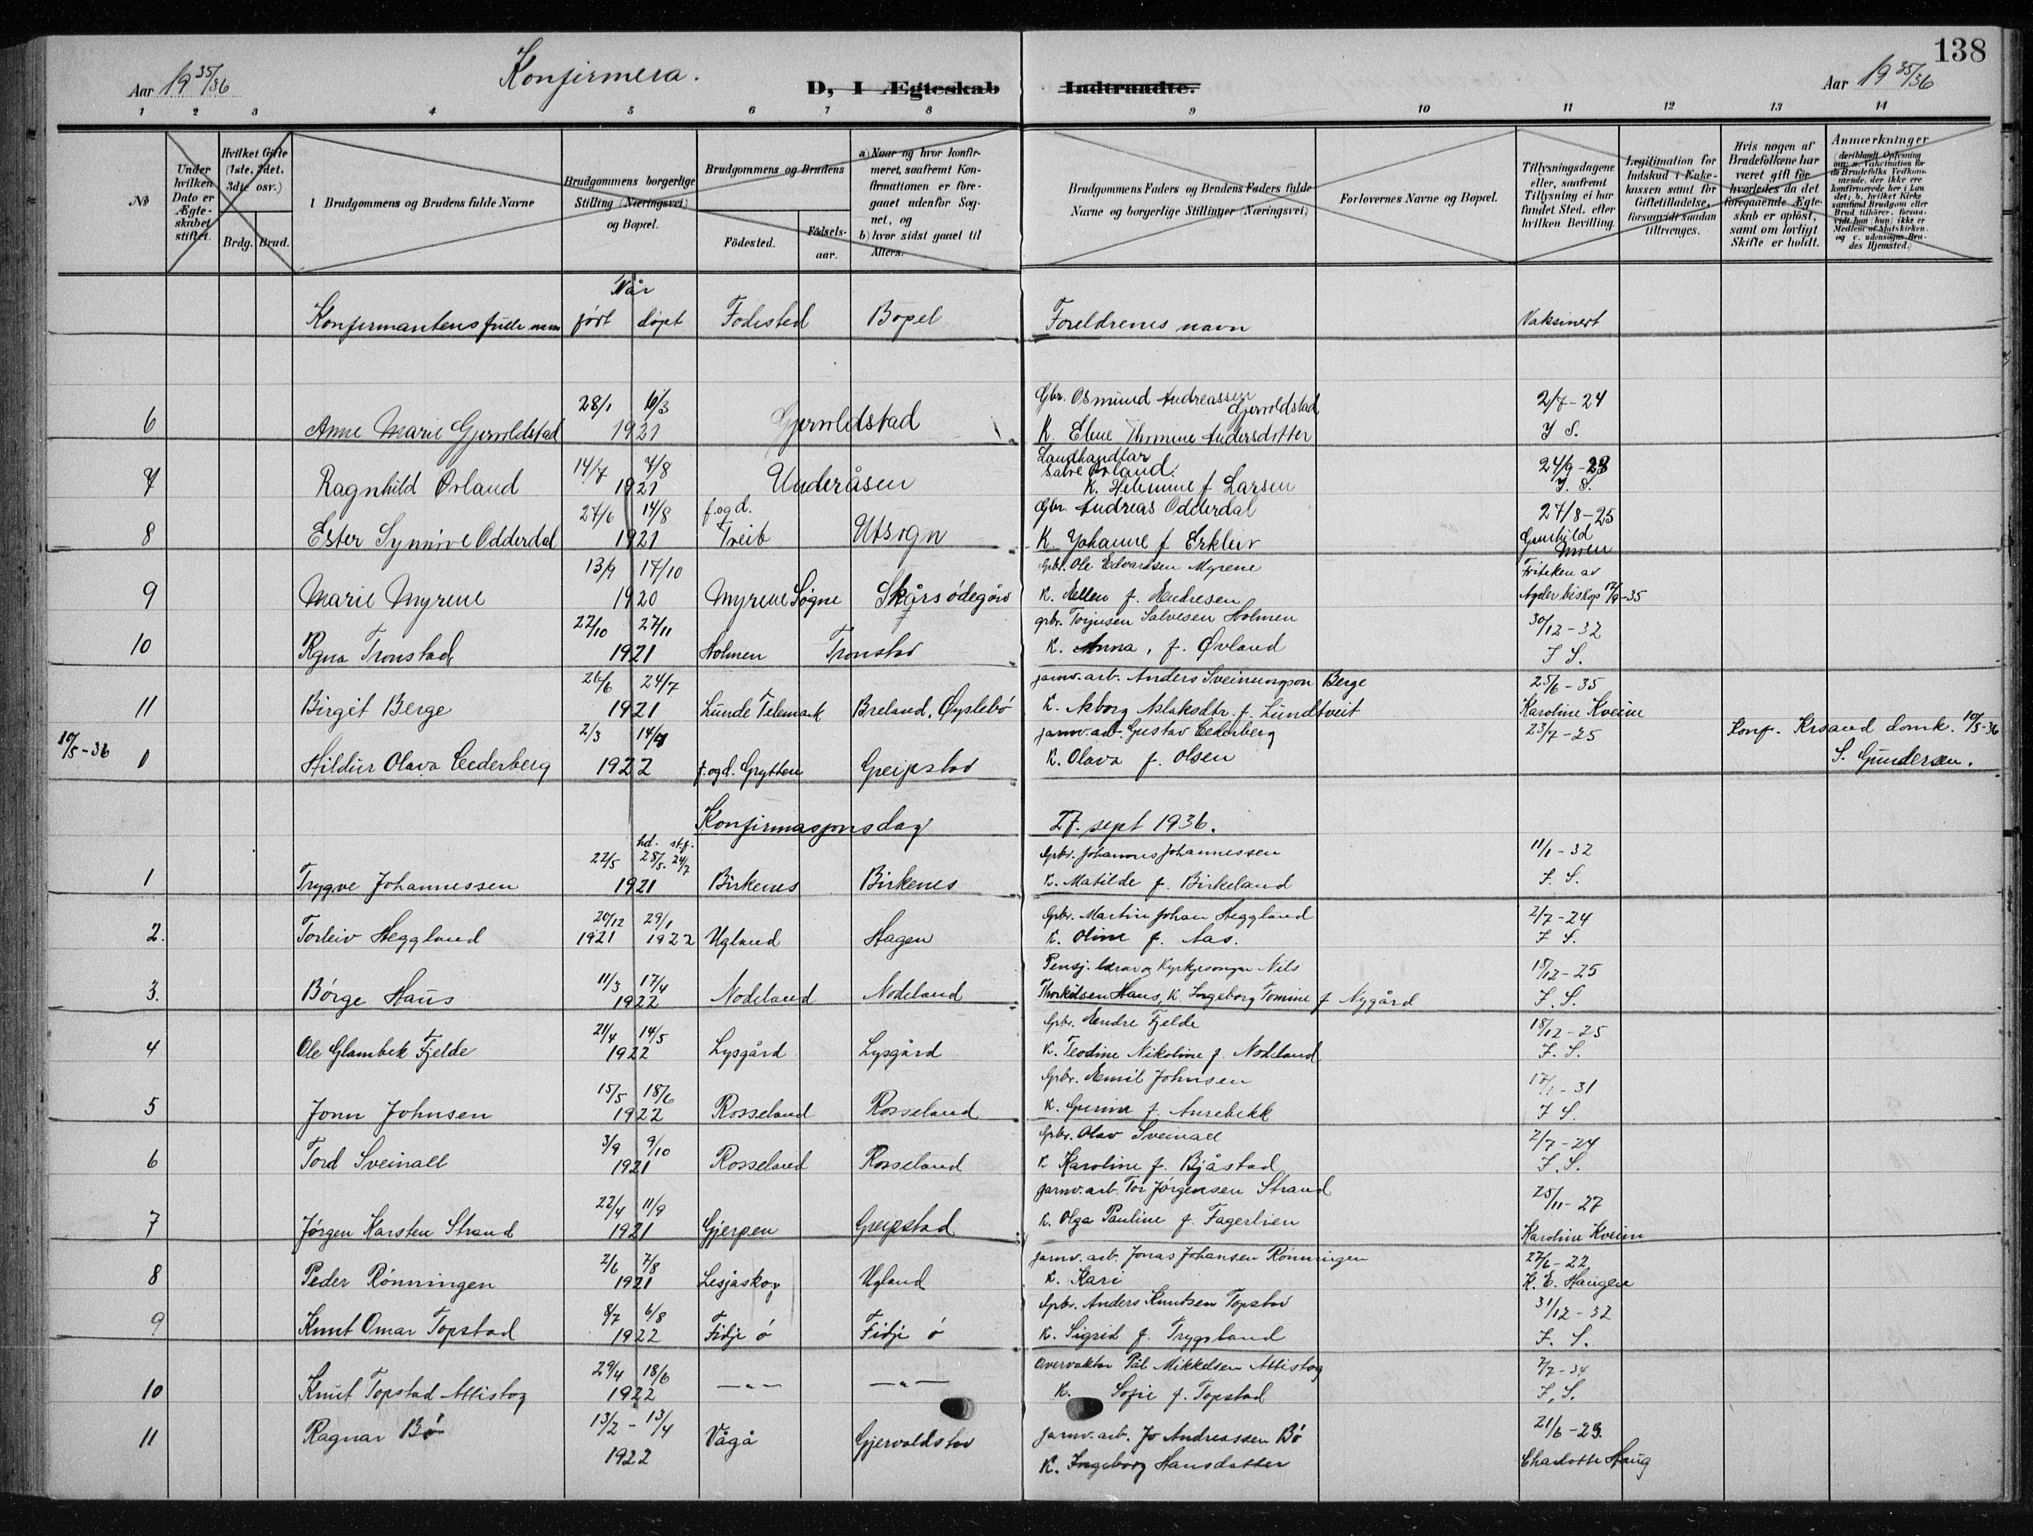 138
Aar 19 35/36
Konfirmera.
D, I Ægteskab
Indtraadte.
Aar 19 35/36
1 2 3 4 5 6 7 8 9 10 11 12 13 14
№
Under hvilken Dato er Ægteskabet stiftet.
Hvilket Gifte (1ste, 2det, 3die osv.)
Brdg. Brud.
1 Brudgommens og Brudens fulde Navne
Brudgommens borgerlige Stilling (Næringsvei) og Bopæl.
Brudgommens og Brudens
Födested.
Födselsaar.
a) Naar og hvor konfirmeret, saafremt Konfirmationen er foregaaet udenfor Sognet, og
b) hvor sidst gaaet til Alters.
Brudgommens Faders og Brudens Faders fulde Navne og borgerlige Stillinger (Næringsvei)
Forlovernes Navne og Bopæl.
Tillysningsdagene eller, saafremt Tillysning ei har fundet Sted, efter hvilken Bevilling.
Legitimation for Indskud i Enkekassen samt for Giftetilladelse, forsaavidt saadan tiltrænges.
Hvis nogen af Brudefolkene har været gift för hvorledes da det foregaaende Ægteskab er oplöst, samt om lovligt Skifte er holdt.
Anmærkninger
Når
Konfirmantens fulle navn født døpt Fødested Bopel Foreldrenes navn Vaksinert
28/1 6/3 Gbr. Osmund Andreassen Gjervoldstad 2/7-24
6 Anne Marie Gjervoldstad 1921 Gjervoldstad K. Elene Thomine Andersdotter J S.
14/7 7/8 Landhandlar Salve Ørland. 24/9-23
7 Ragnhild Ørland 1921 Underåsen K. Helemine f Larsen J. S.
27/6 14/8 f. og d. Gbr Andreas Odderdal 27/8-25
8 Ester Synnøve Odderdal 1921 Treib Utsogn K Johanne f Erkleiv Gunhild Moen
13/9 17/10 Gbr. Ole Edvardsen Myrene Friteken av
9 Marie Myrene 1920 Myrene Søgne Skårsødegård K. Ellen f. Endresen Agder biskop 17/9-35
22/10 27/11 gbr. Torjusen Salvesen Holmen 30/12-32
10 Agna Tronstad 1921 Holmen Tronstad K. Anna, f. Øvland J S.
26/6 24/7 jarnv. arb. Anders Sveinungson Berge 25/6-35
11 Birgit Berge 1921 Lunde Telemark Breland, Øyslebø K. Asborg Aslaksdtr. f. Lundtveit Karoline Kveim
10/5-36 2/3 14/4 jarnv. arb. Gustav Cederberg 23/7-25 Konf. Krsand domk. 10/5-36
1 Hildur Olava Cederberg 1922 f. og d. Grytten Greipstad K. Olava f. Olsen S. Gundersen.
Konfirmasjonsdag 27. sept 1936.
hd. st.f.
22/5 28/5 24/7 Gbr. Johannes Johannessen 11/1-32
1 Trygve Johannessen 1921 Birkenes Birkenes K. Matilde f. Birkeland J. S.
20/12 29/1 Gbr. Martin Johan Heggland 2/7-24
2. Torleiv Heggland 1921 1922 Ugland Hagen K. Oline f. Aas. J S.
11/3 17/4 Pensj. lærar og Kyrkjesongar Nils 18/12-25
3. Børge Haus 1922 Nodeland Nodeland Thorkilsen Haus, K Ingeborg Tomine f Nygård J. S.
21/4 14/5 Gbr. Endre Fjelde 18/12-25
4 Ole Glambek Fjelde 1922 Lysgård Lysgård K. Teodine Nikoline f. Nodeland J. S.
15/5 18/6 Gbr. Emil Johnsen 17/1-31
5 Jonn Johnsen 1922 Rosseland Rosseland K. Gurina f. Aurebekk J S.
3/9 9/10 Gbr. Olav Sveinall 2/7-24
6 Tord Sveinall 1921 Rosseland Rosseland K Karoline f. Bjåstad J. S.
22/4 11/9 jarnv. arb. Tor Jørgensen Strand 25/11-27
7 Jørgen Karsten Strand 1921 Gjerpen Greipstad K. Olga Pauline f. Fagerlien Karoline Kveim
2/6 7/8 jarnv. arb. Jonas Johansen Rønningen 27/6-22
8 Peder Rønningen 1921 Lesjaskog Ugland K. Kari K. E. Haugen
8/7 6/8 Gbr. Anders Knutsen Topstad 31/12-32
9 Knut Omar Topstad 1922 Fidje ø Fidje ø K. Sigrid f. Trygsland J. S.
29/4 18/6 Overvaktar Pål Mikkelsen Attistog 7/7-34
10 Knut Topstad Attistog 1922 —„— —„— K. Sofie f. Topstad J. S.
13/2 - 13/4 jarnv. arb. Jo Andreassen Bø 21/6-23
11 Ragnar Bø 1922 Vågå Gjervoldstad K. Ingeborg Hansdatter Charlotte Haug